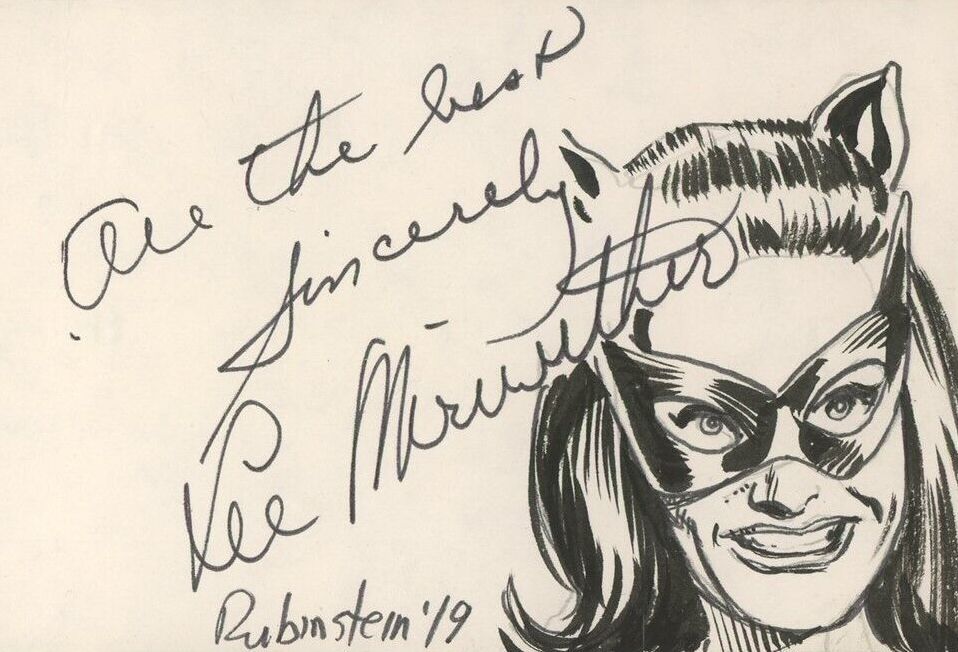 All the best
Sincerely
Lee Meriwether
Rubinstein '19